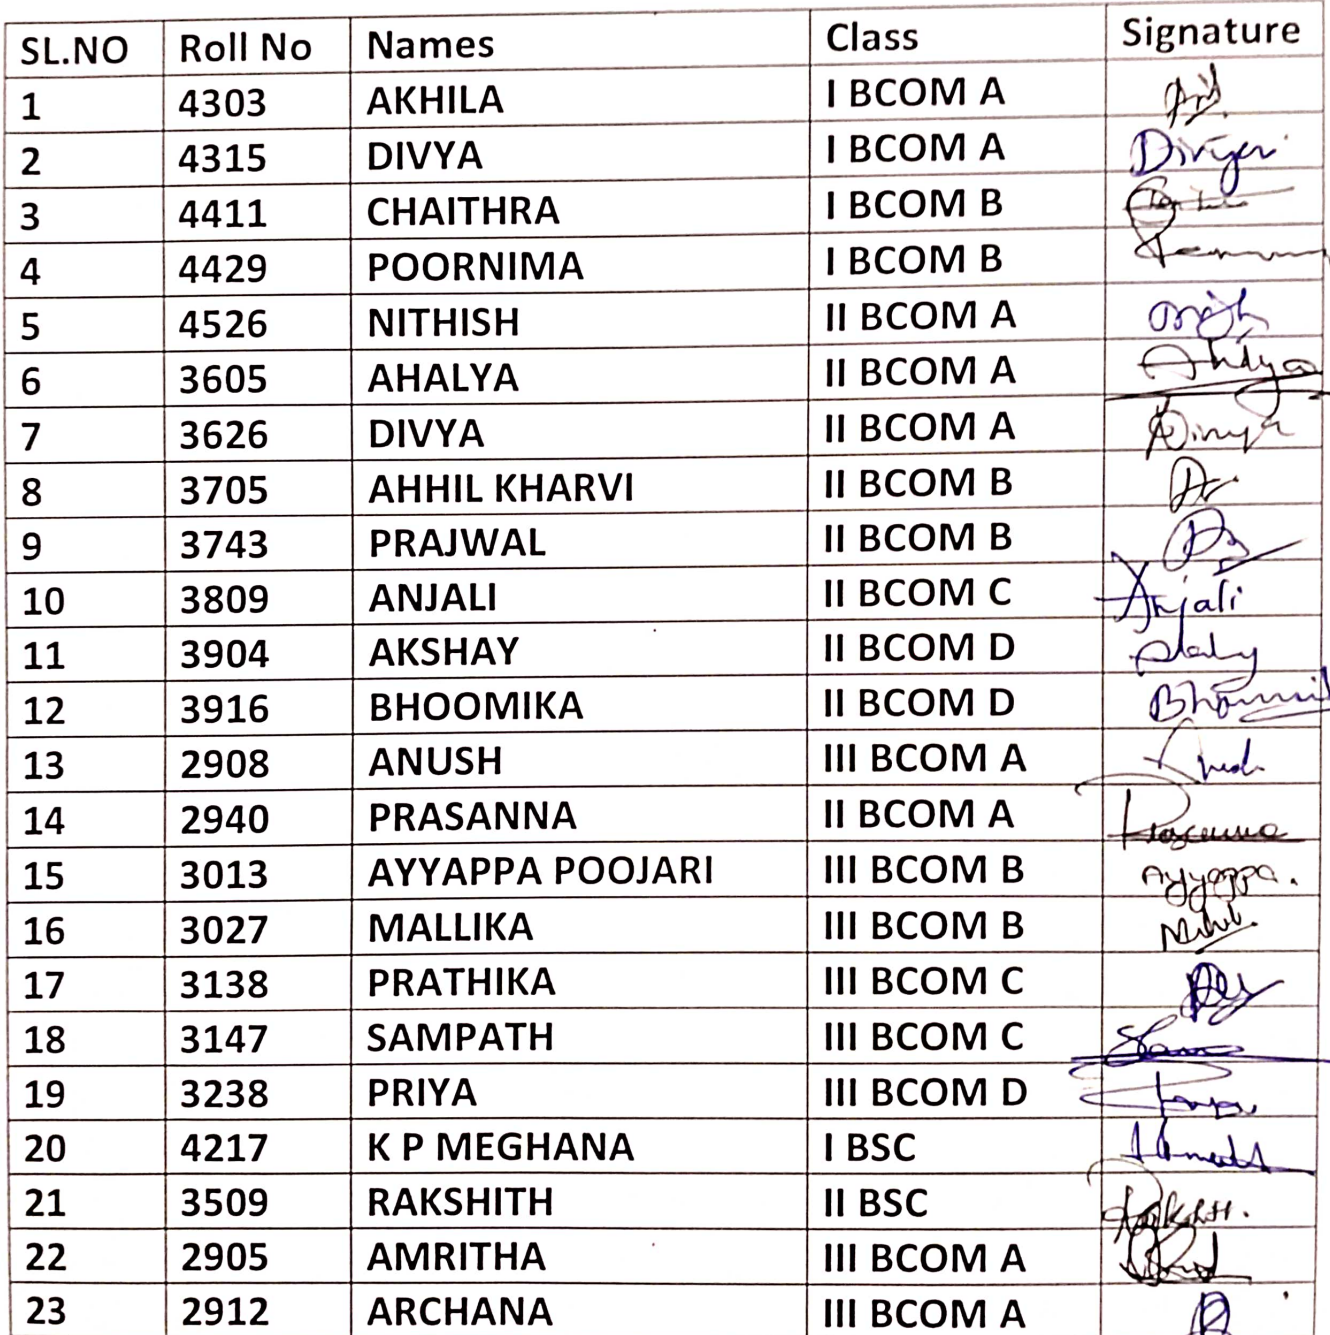 SL.NO Roll No Names Class Signature
1 4303 AKHILA I BCOM A
2 4315 DIVYA I BCOM A Divya
3 4411 CHAITHRA I BCOM B
4 4429 POORNIMA I BCOM B
5 4526 NITHISH II BCOM A
6 3605 AHALYA II BCOM A Ahalya
7 3626 DIVYA II BCOM A Divya
8 3705 AHHIL KHARVI II BCOM B
9 3743 PRAJWAL II BCOM B
10 3809 ANJALI II BCOM C Anjali
11 3904 AKSHAY II BCOM D
12 3916 BHOOMIKA II BCOM D
13 2908 ANUSH III BCOM A
14 2940 PRASANNA II BCOM A Prasanna
15 3013 AYYAPPA POOJARI III BCOM B Ayyappa.
16 3027 MALLIKA III BCOM B
17 3138 PRATHIKA III BCOM C
18 3147 SAMPATH III BCOM C
19 3238 PRIYA III BCOM D
20 4217 K P MEGHANA I BSC
21 3509 RAKSHITH II BSC
22 2905 AMRITHA III BCOM A
23 2912 ARCHANA III BCOM A